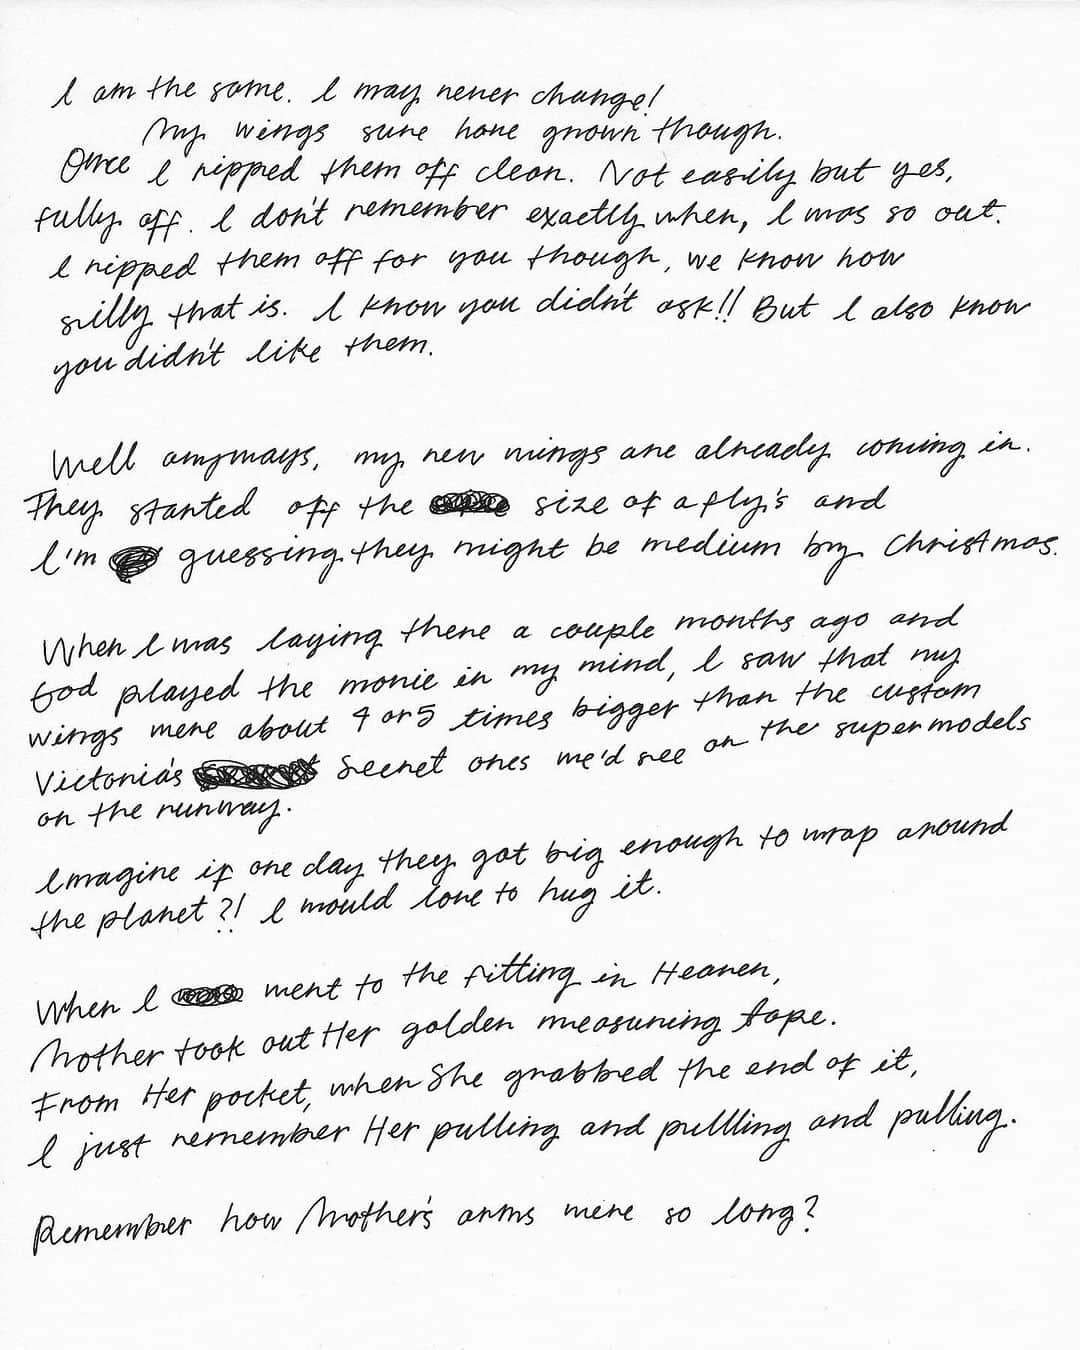 I am the same. I may never change!
My wings sure have grown though.
Once I ripped them off clean. Not easily but yes,
fully off. I don't remember exactlly when, I was so out.
I ripped them off for you though, we know how
silly that is. I know you didn't ask!! But I also know
you didn't like them.
Well anyways, my new wings are already coming in.
They started off the size of a fly's and
I'm guessing they might be medium by Christmas.
When I was laying there a couple months ago and
God played the movie in my mind, I saw that my
wings were about 4 or 5 times bigger than the custom
Victoria's Secret ones we'd see on the supermodels
on the runway.
Imagine if one day they got big enough to wrap around
the planet?! I would love to hug it.
When I went to the fitting in Heaven,
Mother took out Her golden measuring tape.
From Her pocket, when She grabbed the end of it,
I just remember Her pulling and pullling and pulling.
Remember how Mother's arms were so long?